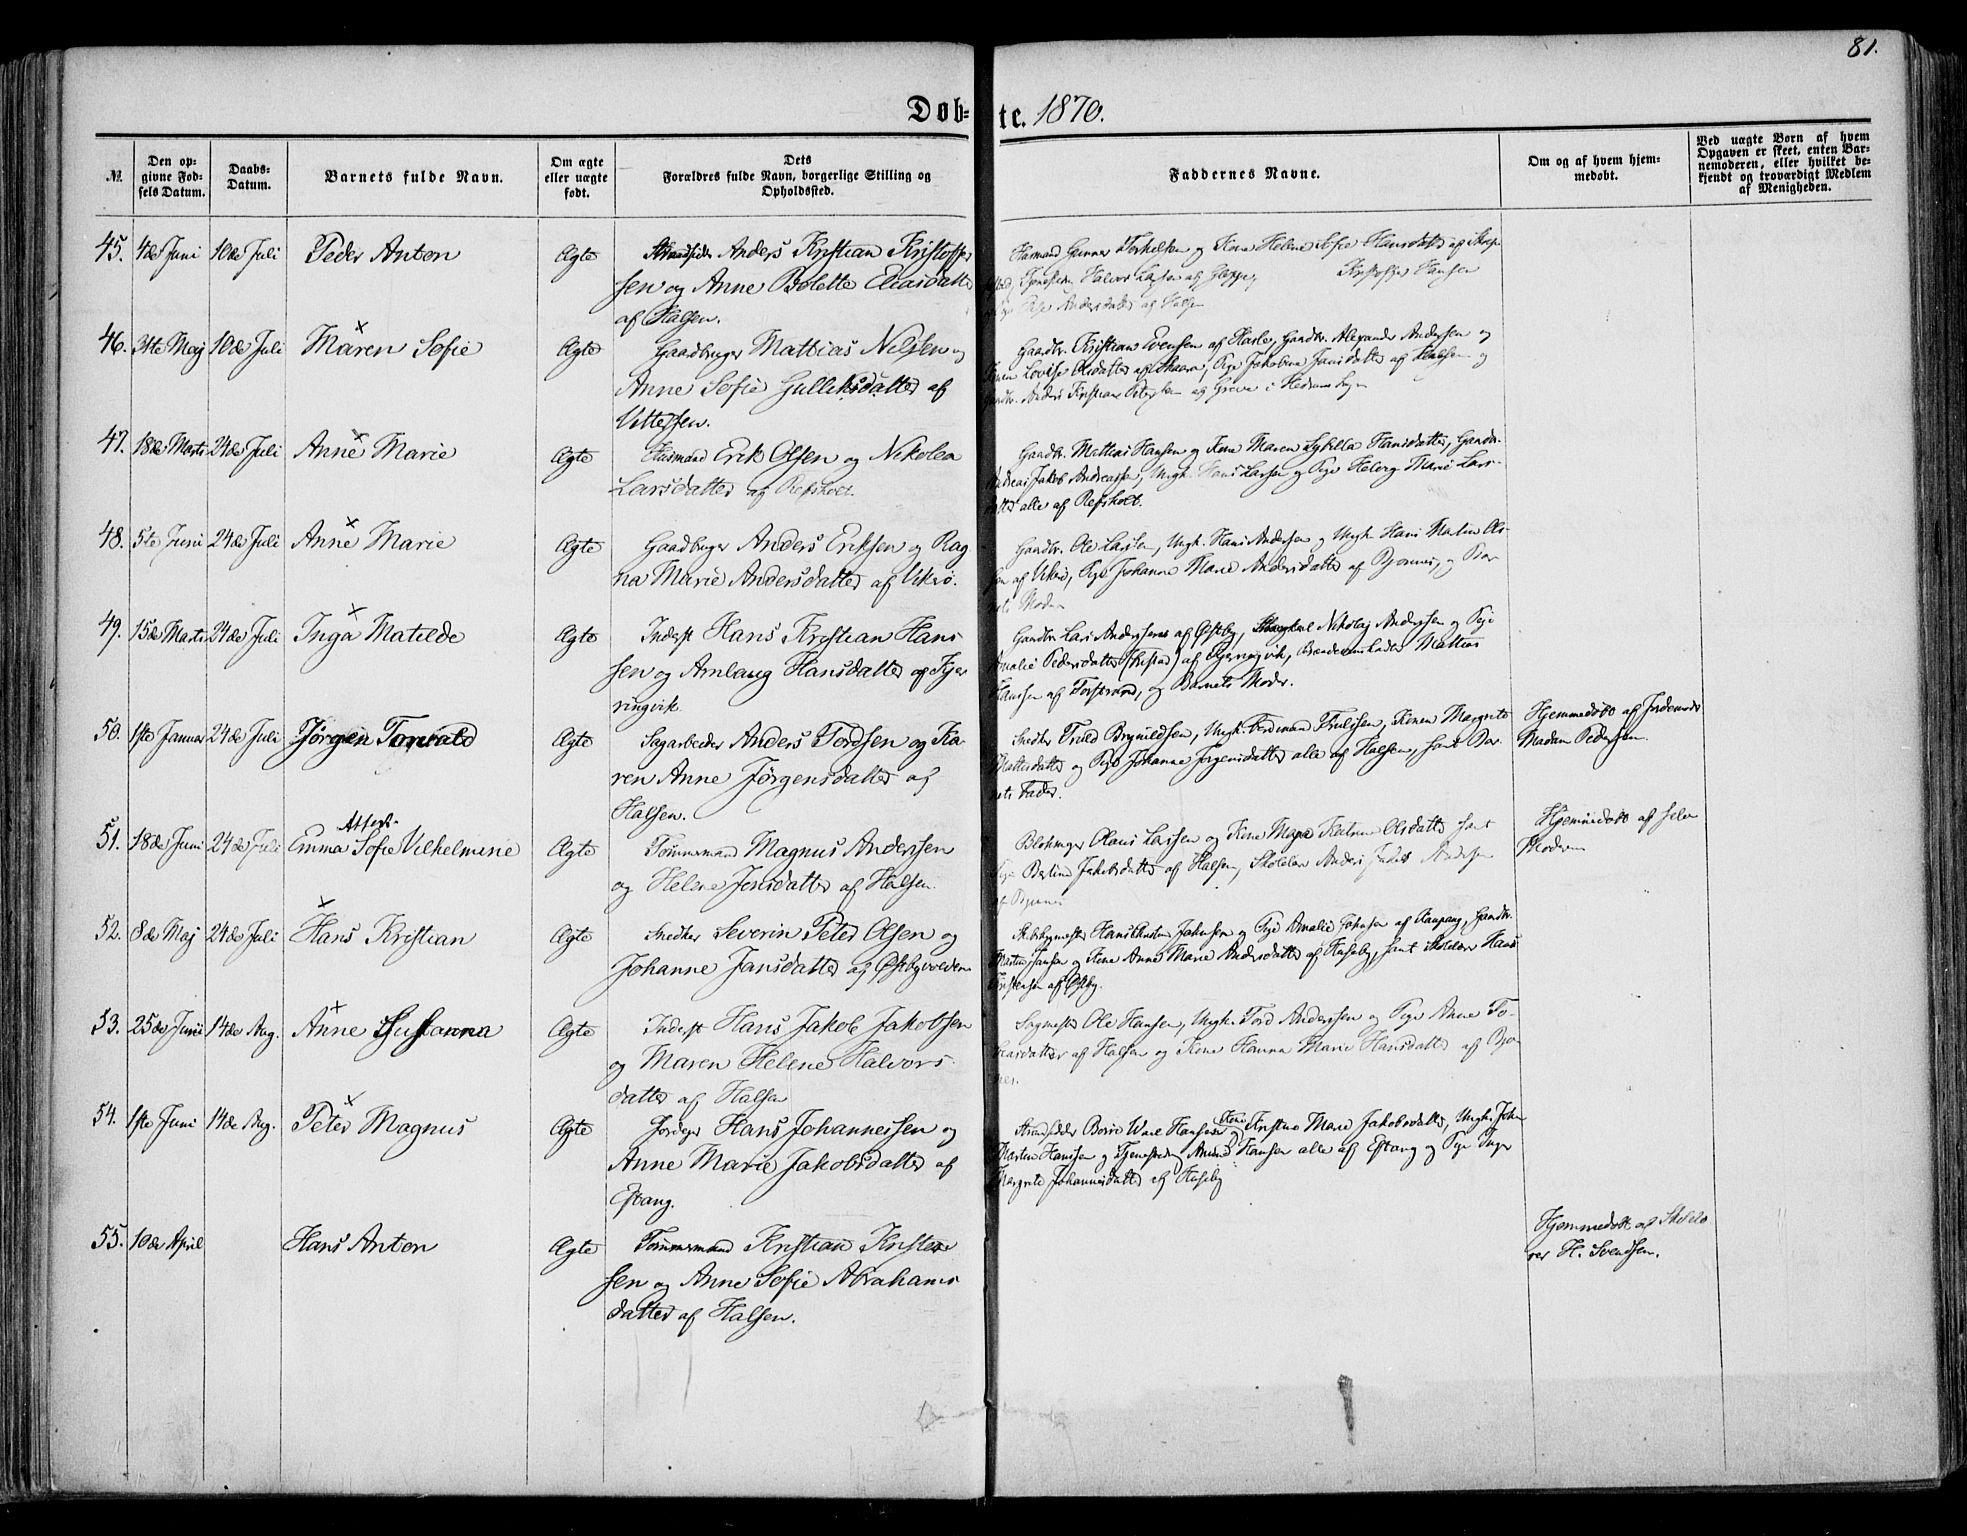 81.
Døb= te. 1870.
№.
Den op=
givne Fød=
sels Datum.
Daabs=
Datum.
Barnets fulde Navn.
Om ægte
eller uægte
født.
Dets
Forældres fulde Navn, borgerlige Stilling og
Opholdssted.
Faddernes Navne.
Om og af hvem hjem=
medøbt.
Ved uægte Børn af hvem
Opgaven er skeet, enten Bar=
nemoderen, eller hvilket be=
kjendt og troværdigt Medlem
af Menigheden.
45. 4de Juni 10de Juli Peder Anton Ægte Strandsider Anders Kristian Kristoffer
sen og Anne Bolette Eliasdatter
af Halsen.
Husmand Gunner Torkelsen og Kone Helene Sofie Hansdatter af
Halvor Larsen af Kristoffer Hansen
Pige Andersdatter af Halsen
46. 31te Maj 10de Juli Maren Sofie Ægte Gaadbruger Mattias Nilsen og
Anne Sofie Gulliksdatter af
Vittersen.
Gaadbr. Kristian Evensen af Hasle, Gaadbr. Alexander Andersen og
Lovise Olsdatter af Pige Jakobine Jansdatter af Halsen og
Gaadbr. Anders Kristian Petersen af Greve i Hedrums Sogn
47. 18de Marts 24de Juli Anne Marie Ægte Husmand Erik Olsen og Nikolea
Larsdatter af Refsholt.
Gaadbr. Mattias Hansen og Kone Maren Sybilla Hansdatter, Gaadbr.
Andreas Jakob Andreassen, Ungk. Hans Larsen og Pige Helvig Marie Lars-
datter alle af Refsholt.
48. 5te Juni 24de Juli Anne Marie Ægte Gaadbruger Anders Eriksen og Rag
na Marie Andersdatter af Vikrø.
Gaadbr. Ole Larsen, Ungk. Hans Andersen og Ungk. Hans Martin Ol-
sen af Vikrø, Pige Johanne Marie Andersdatter af Bjønnes, og Bar
nets Moder
49. 15de Marts 24de Juli Inga Matilde Ægte Inderst Hans Kristian Han
sen og Amlaug Hansdatter af Kjer
ringvik.
Gaadbr. Lars Anderssen af Østby, Ungkarl Nikolaj Anderssen og Pige
Amalie Pedersdatter (Tristad) af Kjerringvik, Mattias
Hanssen af Torstrand, og Barnets Moder.
50. 1ste Januar 24de Juli Jørgen Torvald Ægte Sagarbeider Anders Tordsen og Ka
ren Anne Jørgensdatter af
Halsen.
Snedker Truls Brynildsen, Ungk. Ferdinand Trulsen, Konen Margrete
Mattisdatter og Pige Johanne Jørgensdatter alle af Halsen, samt Bar
nets Fader.
Hjemmedøbt af Jordemoder
Madam Pedersen.
51. 18de Juni 24de Juli Attest. Emma Sofie Vilhelmine Ægte Tømmermand Magnus Anderssen
og Helene Jensdatter af Halsen.
Olaus Larssen og Kone Katrine Olsdatter samt
Pige Berlina Jakobsdatter af Halsen, Skolelær. Anders Andersen
Hjemmedøbt af selve
Moderen
52. 8de Maj 24de Juli Hans Kristian Ægte Snedker Severin Peter Olsen og
Johanne Jansdatter af Østbyvolden
Skibsbygmester Hans Kristian Johnsen og Pige Amalie Johnsen af Kaupang, Gaadbr.
Martin Jansen og Kone Anne Marie Andersdatter af Huseby, samt Skolelær. Hans
Kristensen af Østby.
53. 25de Juni 14de Aug. Anne Susanna Ægte Inderst Hans Jakob Jakobsen
og Maren Helene Halvors
datter af Halsen
Sagmester Ole Hansen, Ungk. Tord Anderssen og Pige Anne To-
biasdatter af Halsen og Kone Hanna Marie Hansdatter af Bjøn
nes.
54. 1ste Juni 14de Aug. Peter Magnus Ægte Jordejer Hans Johannessen og
Anne Marie Jakobsdatter af
Eftang.
Strandsidder Børre Wael Hansen og Kone Kristine Marie Jakobsdatter, Ungk. Johan
Martin Hanssen og Tjenestedreng Hansen alle af Eftang og Pige Inger
Margrete Johannesdatter af Huseby
55. 10de April Hans Anton Ægte Tømmermand Kristian Kristen
sen og Anne Sofie Abrahams
datter af Halsen.
Hjemmedøbt af Skolelæ
rer H. Svendsen.